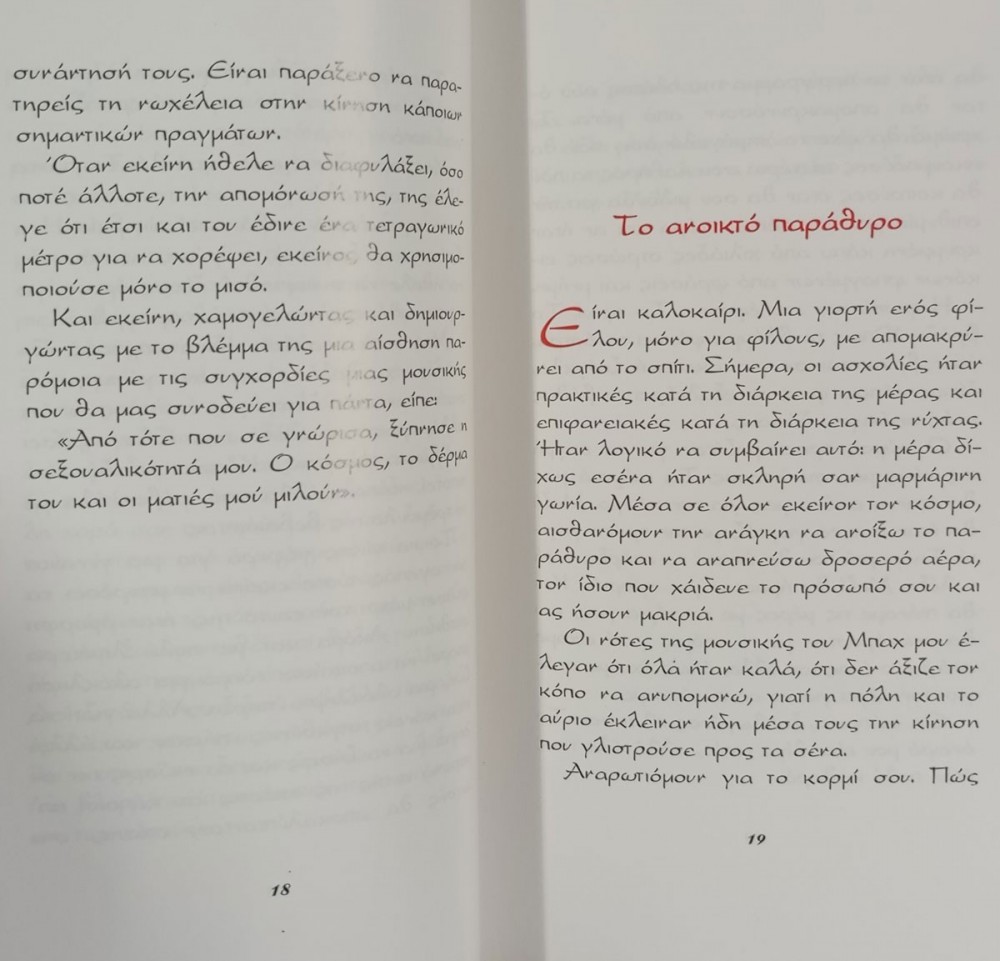 συνάντησή τους. Είναι παράξενο να παρα-
τηρείς τη νωχέλεια στην κίνηση κάποιων
σημαντικών πραγμάτων.
Όταν εκείνη ήθελε να διαφυλάξει, όσο
ποτέ άλλοτε, την απομόνωσή της, της έλε-
γε ότι έτσι και του έδινε ένα τετραγωνικό
μέτρο για να χορέψει, εκείνος θα χρησιμο-
ποιούσε μόνο το μισό.
Και εκείνη, χαμογελώντας και δημιουρ-
γώντας με το βλέμμα της μια αίσθηση πα-
ρόμοια με τις συγχορδίες μιας μουσικής
που θα μας συνοδεύει για πάντα, είπε:
«Από τότε που σε γνώρισα, ξύπνησε η
σεξουαλικότητά μου. Ο κόσμος, το δέρμα
του και οι ματιές μού μιλούν».
18
Το ανοικτό παράθυρο
Είναι καλοκαίρι. Μια γιορτή ενός φί-
λου, μόνο για φίλους, με απομακρύ-
νει από το σπίτι. Σήμερα, οι ασχολίες ήταν
πρακτικές κατά τη διάρκεια της μέρας και
επιφανειακές κατά τη διάρκεια της νύχτας.
Ήταν λογικό να συμβαίνει αυτό: η μέρα δί-
χως εσένα ήταν σκληρή σαν μαρμάρινη
γωνία. Μέσα σε όλον εκείνον τον κόσμο,
αισθανόμουν την ανάγκη να ανοίξω το πα-
ράθυρο και να αναπνεύσω δροσερό αέρα,
τον ίδιο που χάιδευε το πρόσωπό σου και
ας ήσουν μακριά.
Οι νότες της μουσικής του Μπαχ μου έ-
λεγαν ότι όλα ήταν καλά, ότι δεν άξιζε τον
κόπο να ανυπομονώ, γιατί η πόλη και το
αύριο έκλειναν ήδη μέσα τους την κίνηση
που γλιστρούσε προς τα σένα.
Αναρωτιόμουν για το κορμί σου. Πώς
19